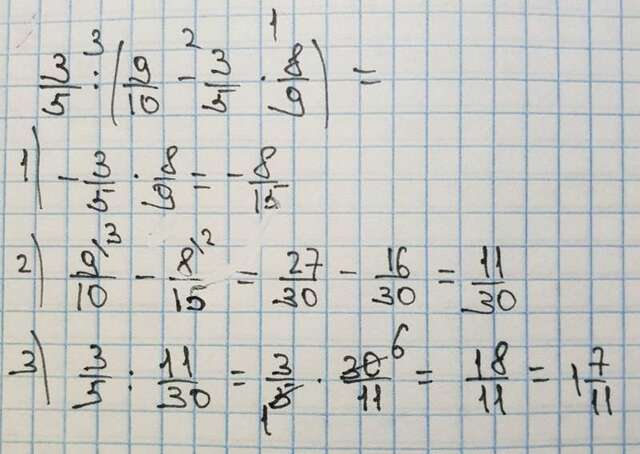 3/5 : (9/10 - 3/5 · 8/9) =
1) - 3/5 · 8/9 = - 8/15
2) 9/10 - 8/15 = 27/30 - 16/30 = 11/30
3) 3/5 : 11/30 = 3/5 · 30/11 = 18/11 = 1 7/11